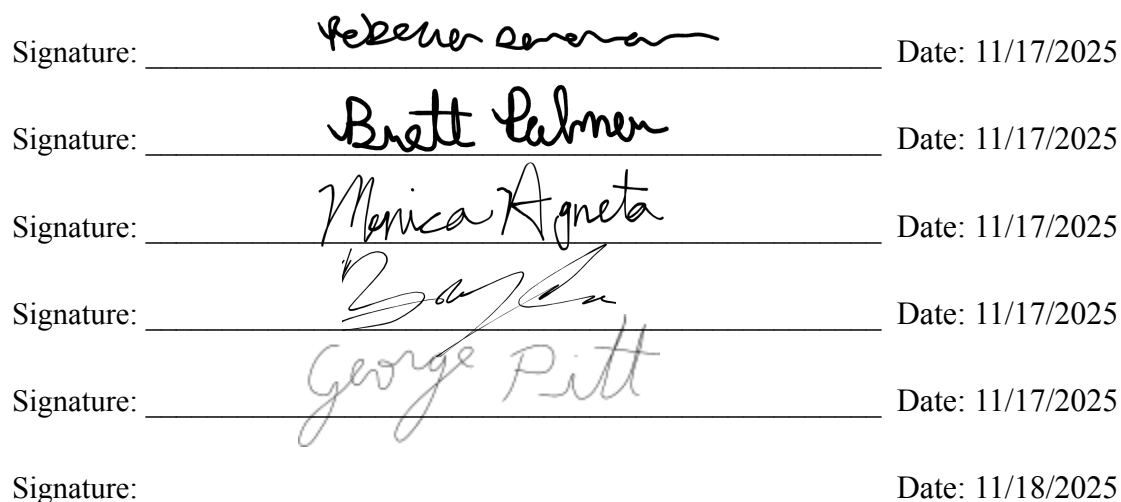 Signature: Date: 11/17/2025
Signature: Brett Palmer Date: 11/17/2025
Signature: Monica Agneta Date: 11/17/2025
Signature: Date: 11/17/2025
Signature: George Pitt Date: 11/17/2025
Signature: Date: 11/18/2025